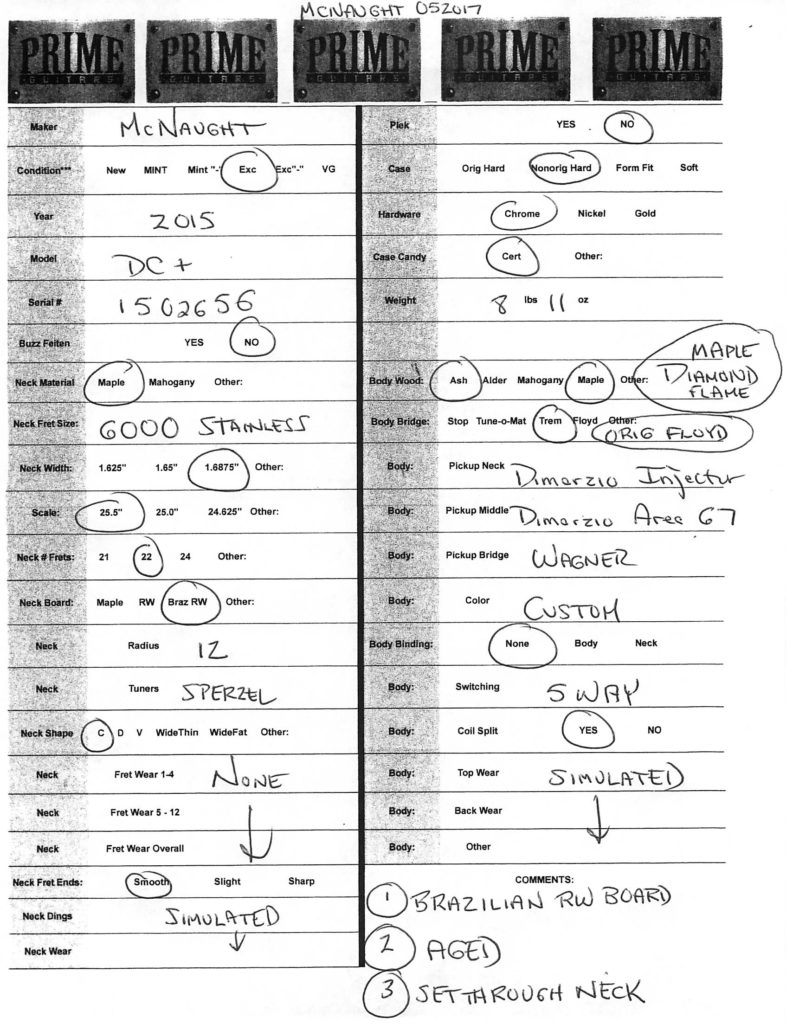 MCNAUGHT 052017
PRIME PRIME PRIME PRIME PRIME
GUITARS GUITARS GUITARS GUITARS GUITARS
Maker McNAUGHT
Condition*** New MINT Mint "-" Exc Exc"-" VG
Year 2015
Model DC+
Serial # 1502656
Buzz Feiten YES NO
Neck Material Maple Mahogany Other:
Neck Fret Size: 6000 STAINLESS
Neck Width: 1.625" 1.65" 1.6875" Other:
Scale: 25.5" 25.0" 24.625" Other:
Neck # Frets: 21 22 24 Other:
Neck Board: Maple RW Braz RW Other:
Neck Radius 12
Neck Tuners SPERZEL
Neck Shape C D V WideThin WideFat Other:
Neck Fret Wear 1-4 NONE
Neck Fret Wear 5 - 12
Neck Fret Wear Overall
Neck Fret Ends: Smooth Slight Sharp
Neck Dings SIMULATED
Neck Wear
Plek YES NO
Case Orig Hard Nonorig Hard Form Fit Soft
Hardware Chrome Nickel Gold
Case Candy Cert Other:
Weight 8 lbs 11 oz
Body Wood: Ash Alder Mahogany Maple Other: MAPLE
DIAMOND
FLAME
Body Bridge: Stop Tune-o-Mat Trem Floyd Other:
ORIG FLOYD
Body: Pickup Neck Dimarzio Injector
Body: Pickup Middle Dimarzio Area 67
Body: Pickup Bridge WAGNER
Body: Color CUSTOM
Body Binding: None Body Neck
Body: Switching 5 WAY
Body: Coil Split YES NO
Body: Top Wear SIMULATED
Body: Back Wear
Body: Other
COMMENTS:
1 BRAZILIAN RW BOARD
2 AGED
3 SET THROUGH NECK